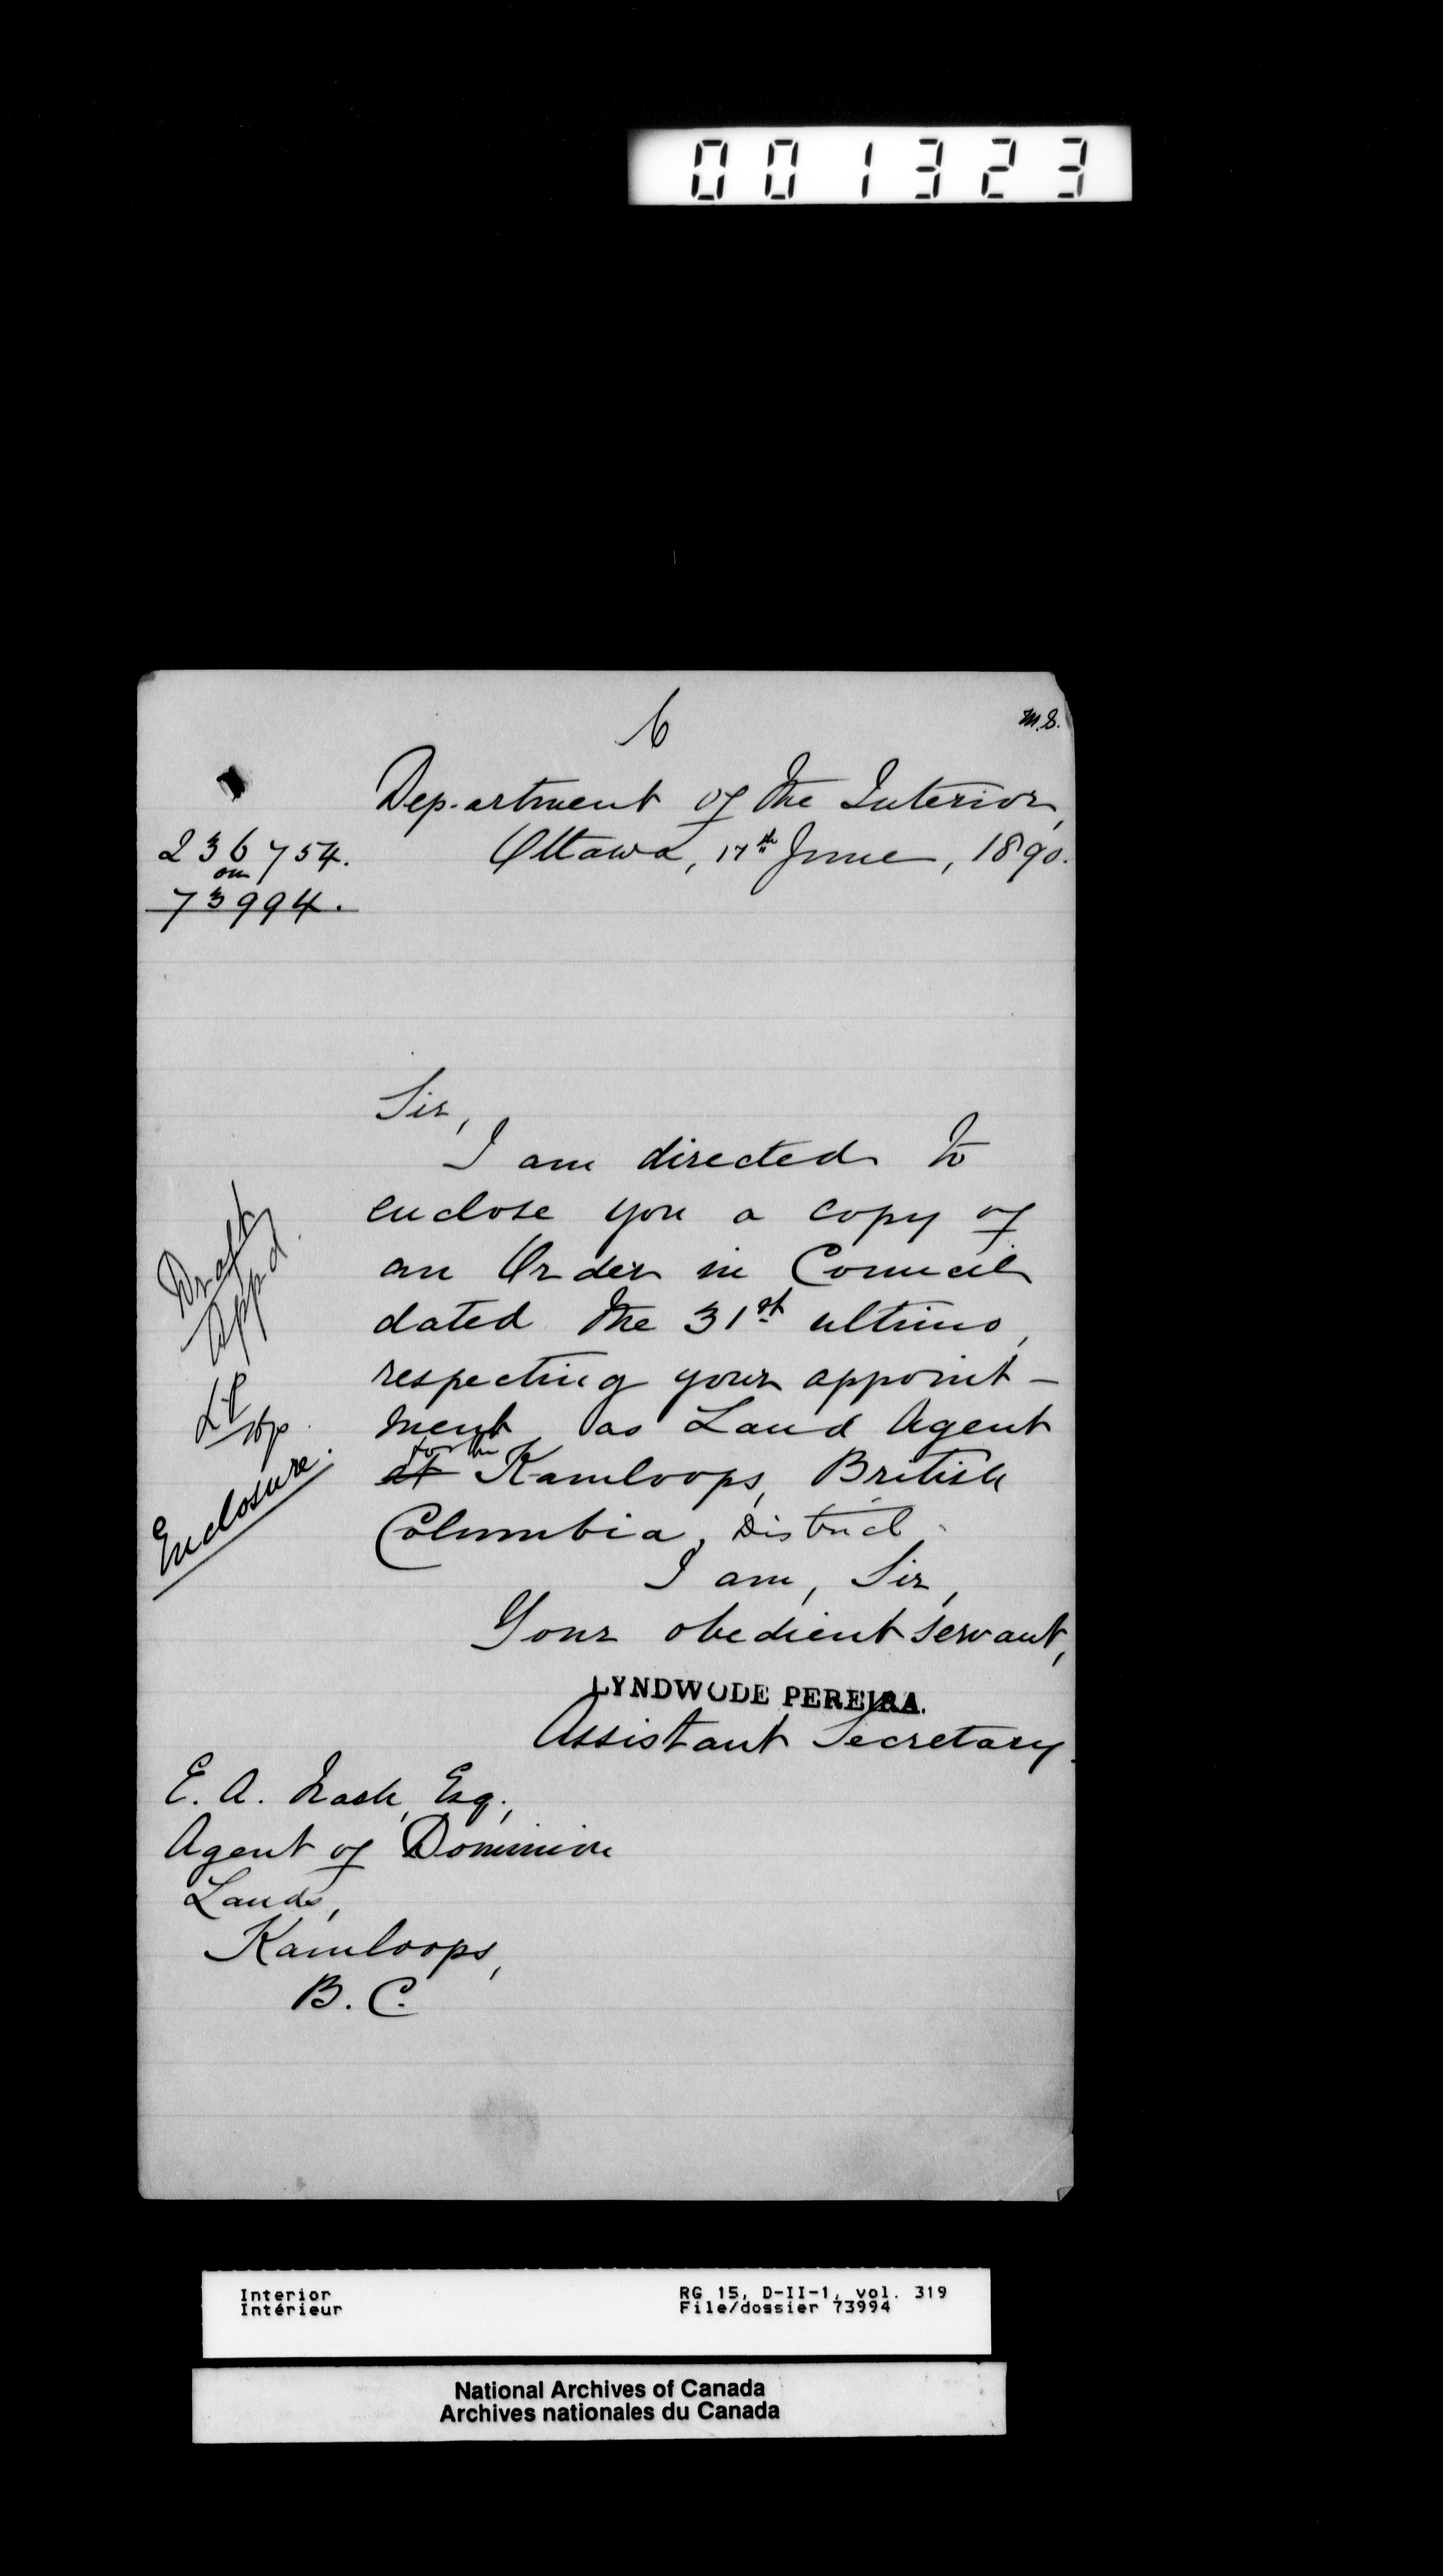 001323
6
M.S.
Department of the Interior,
Ottawa, 17th June, 1890.
236754.
on
73994.
Sir,
I am directed to
enclose you a copy of
an Order in Council
dated the 31st ultimo,
respecting your appoint-
ment as Land Agent
for the
at Kamloops, British
Columbia, District.
I am, Sir,
Your obedient servant,
LYNDWODE PEREIRA.
Assistant Secretary.
Draft
App'd.
L.P.
Enclosure.
E. A. Nash, Esq.,
Agent of Dominion
Lands,
Kamloops,
B. C.
Interior
Intérieur
RG 15, D-II-1, vol. 319
File/dossier 73994
National Archives of Canada
Archives nationales du Canada